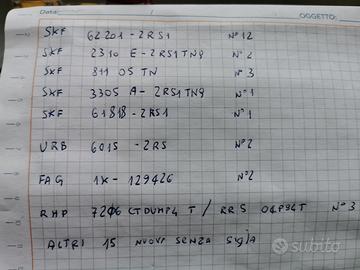 Data:
OGGETTO:
SKF 62201-2RS1 N° 12
SKF 2310 E-2RS1TN9 N° 2
SKF 81105 TN N° 3
SKF 3305 A-2RS1TN9 N° 1
SKF 61818-2RS1 N° 1
URB 6015 -2RS N°2
FAG 1X-129426 N°2
RHP 7206 CTDUMP4 T / RRS 04P94T N° 3
ALTRI 15 NUOVI SENZA SIGLA
subito